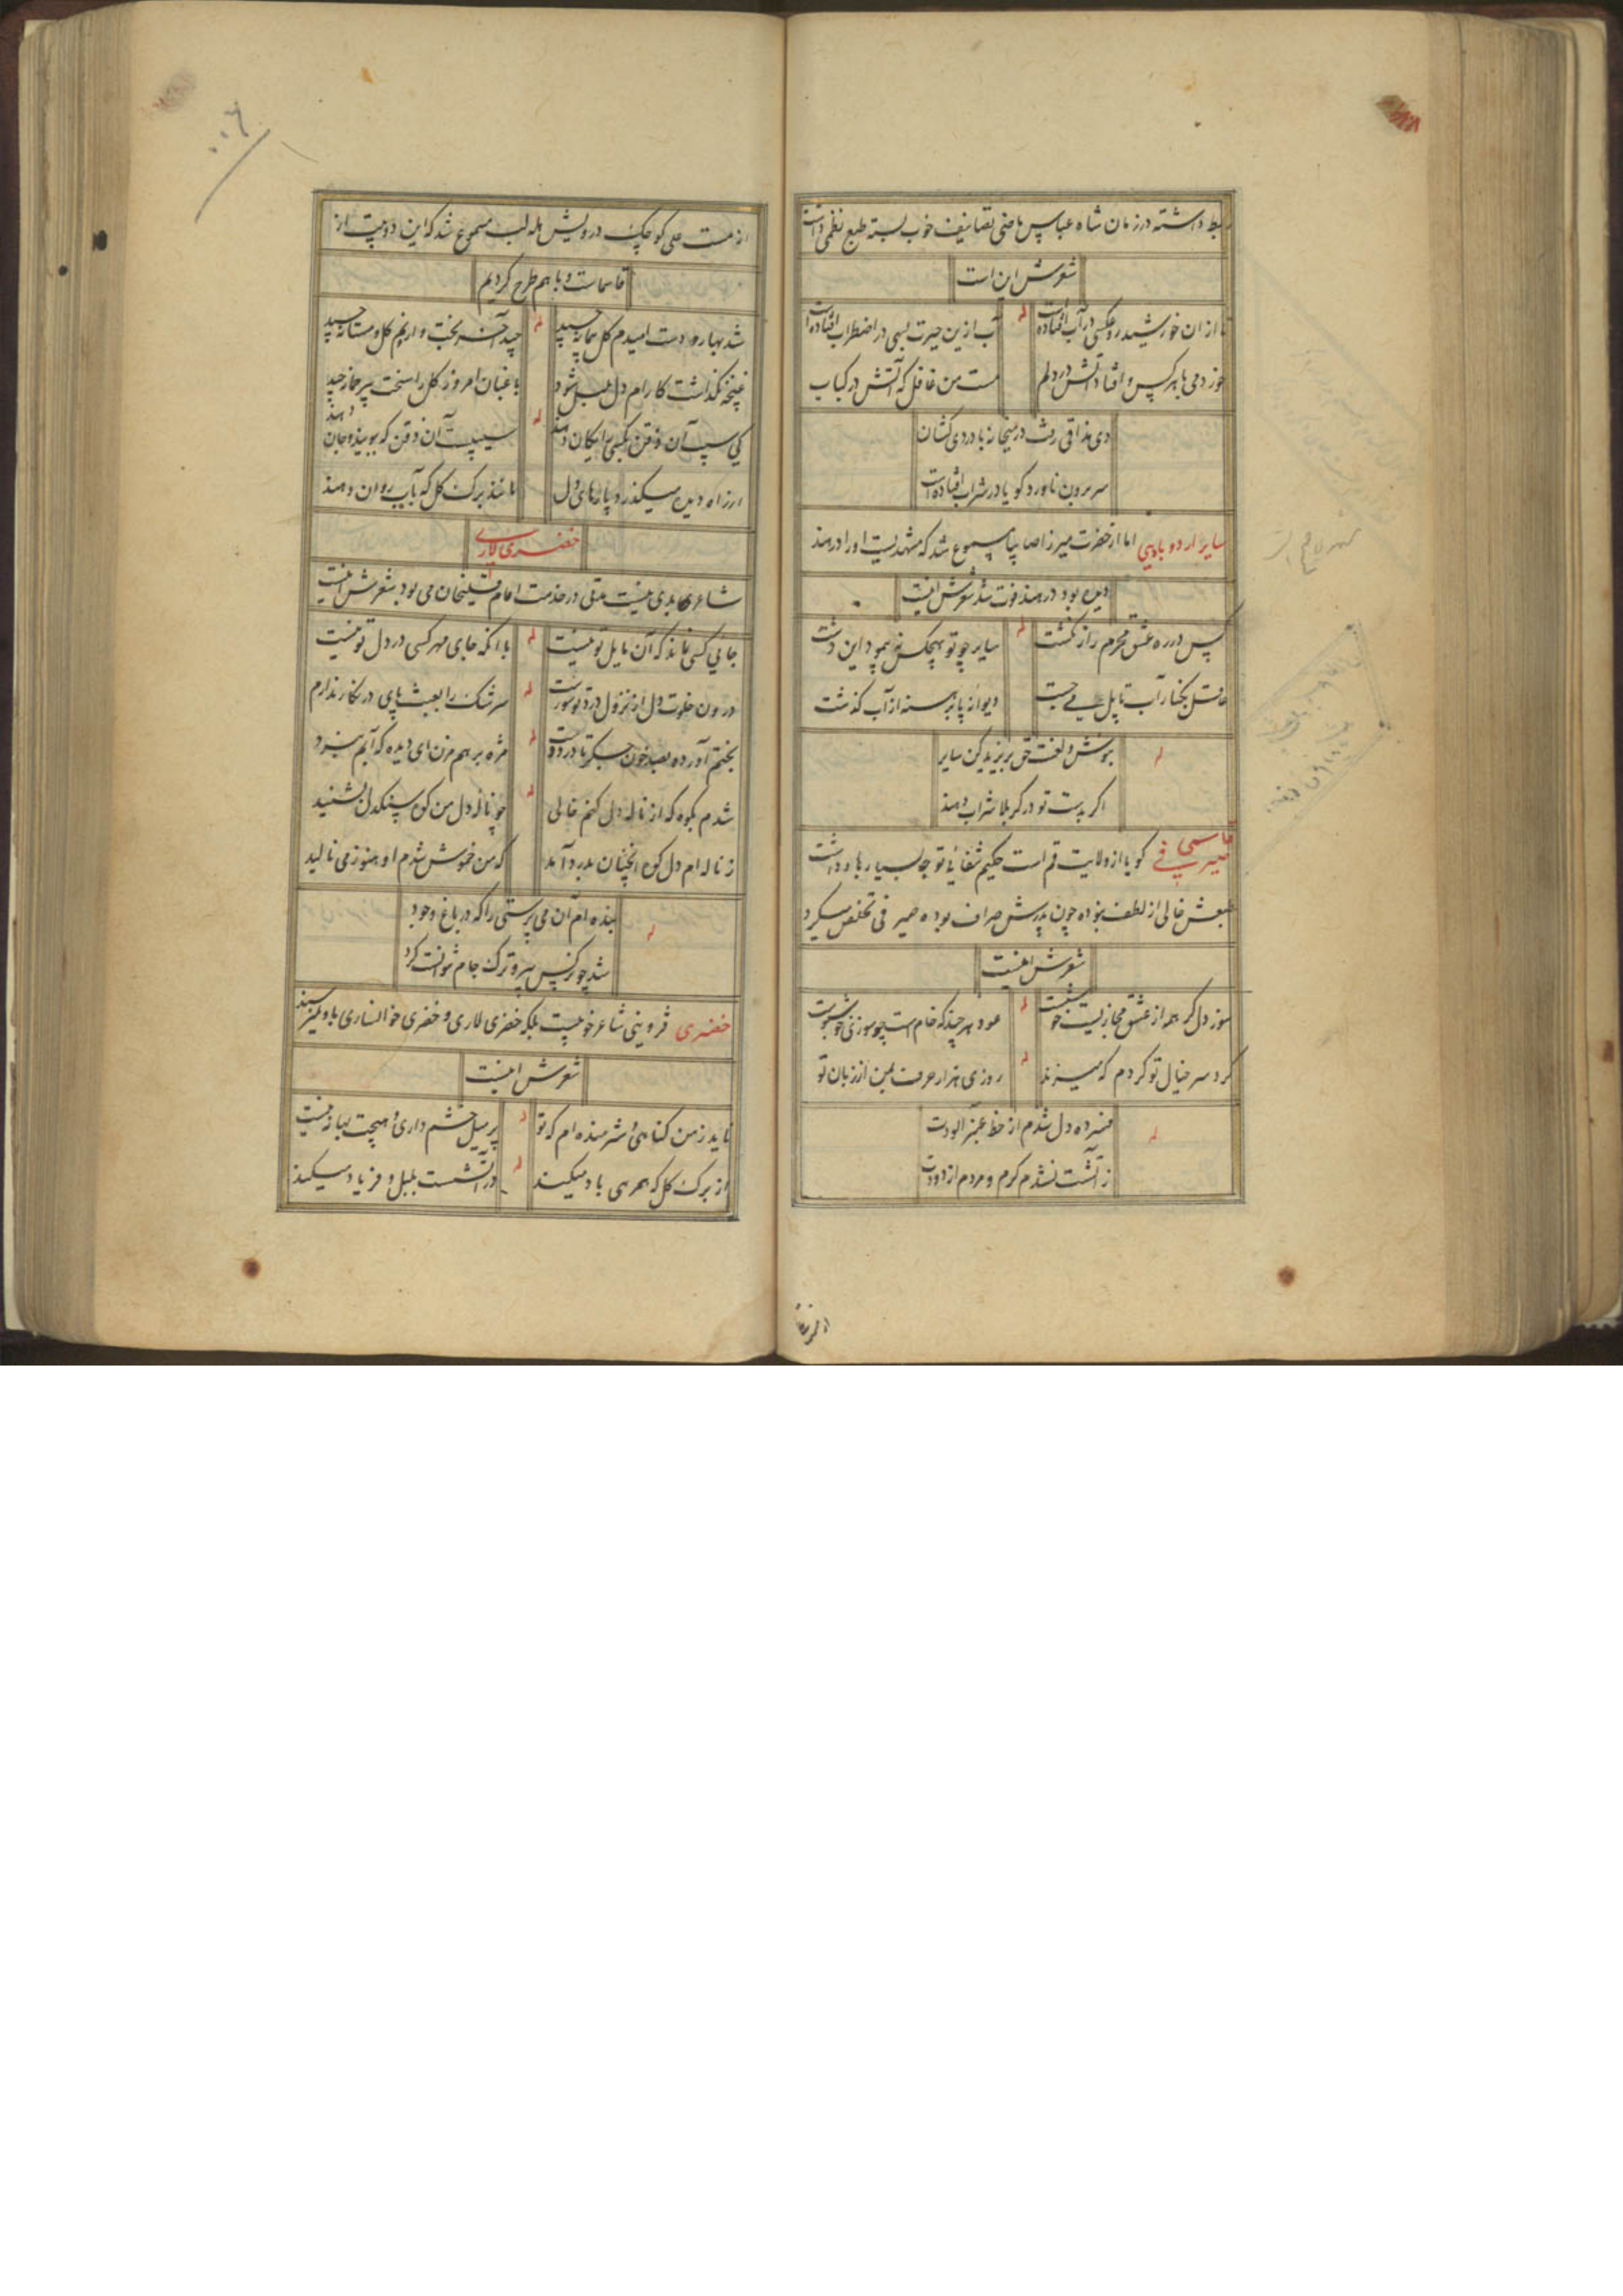 ربط داشته در زمان شاه عباس ماضی تصانیف خوب بسته طبع نظمی داشت
شعرش این است
تا از ان خورشید رو عکسی در آب افتاده است له آب ازین حیرت بسی در اضطراب افتاده است
خورد می با هر کس و افتاد آتش در دلم مست من غافل که آتش در کباب
دی مذاقی رفت در میخانه با دردی کشان
سر برون ناورد کویا در شراب افتاده است
سایر اردوبادی اما از حضرت میرزا صایبا مسموع شد که مشهدیست او را در هند
دیده بود در هند فوت شد شعرش اینست
پس در ره عشق محرم راز نکشت له سایر چو تو هیچکس نپیمود این دشت
عاقل بکنار آب تا پل می جست دیوانه پا برهنه از آب کذشت
له بنوش و لعنت حق بر یزید کن سایر
اکر بدست تو در کربلا شراب دهند
قاسمی
صیرفی کویا از ولایت قم است حکیم شفائی توجه بسیار باو داشت
طبعش خالی از لطف نبوده چون پدرش صراف بوده صیرفی تخلص میکرد
شعرش اینست
سوز دل کر همه از عشق مجازیست خوشست له عود هر چند که خام است چو سوزی خوشبوست
کرد سر خیال تو کردم که میزند له روزی هزار حرف بمن از زبان تو
له فسرده دل شدم از خط عنبر آلودت
ز آتشت نشدم کرم و مردم از دودت
از مست علی کوچک درویش هله لب مسموع شد که این دو بیت از
قاسماست و با هم طرح کردیم
شد بهار و دست امیدم کل پیمانه چید له چید آخر بخت وارونم کل و مستانه چید
غنچه نکذاشت کارام دل بلبل شود باغبان امروز کل را سخت بیرحمانه چید
کی سیب آن ذقن بکسی رایکان دهند له سیبیست آن ذقن که ببویند و جان دهند
از راه دیده میکذرد پارهای دل مانند برک کل که بآب روان دهند
خضری لاری
شاعر بدی نیست مدتی در خدمت امام قلیخان می بود شعرش اینست
جایی کسی نماند که آن مایل تو نیست له با انکه جای مهر کسی در دل تو نیست
درون خلوت دل از نزول درد تو سورست له سرشک را بعبث پای در نکار ندارم
بخشم آورده بصد خون جکر تا در دوست له مژه بر هم مزن ای دیده که آبم نبرد
شدم بکوه که از ناله دل کنم خالی له چو ناله دل من کوه سنکدل بشنید
ز ناله ام دل کوه انچنان بدرد آمد که من خموش شدم او هنوز می نالید
له بنده ام آن می پرستی را که در باغ وجود
شد چو نرکس پیر و ترک جام نتوانست کرد
خضری قزوینی شاعر خوبیست بلکه خضری لاری و خضری خوانساری باو نمیرسند
شعرش اینست
ناید ز من کناهی و شرمنده ام که تو له پر میل خشم داری و هیچت بهانه نیست
از برک کل که همرهی باد میکند له در آتشست بلبل و فریاد میکند